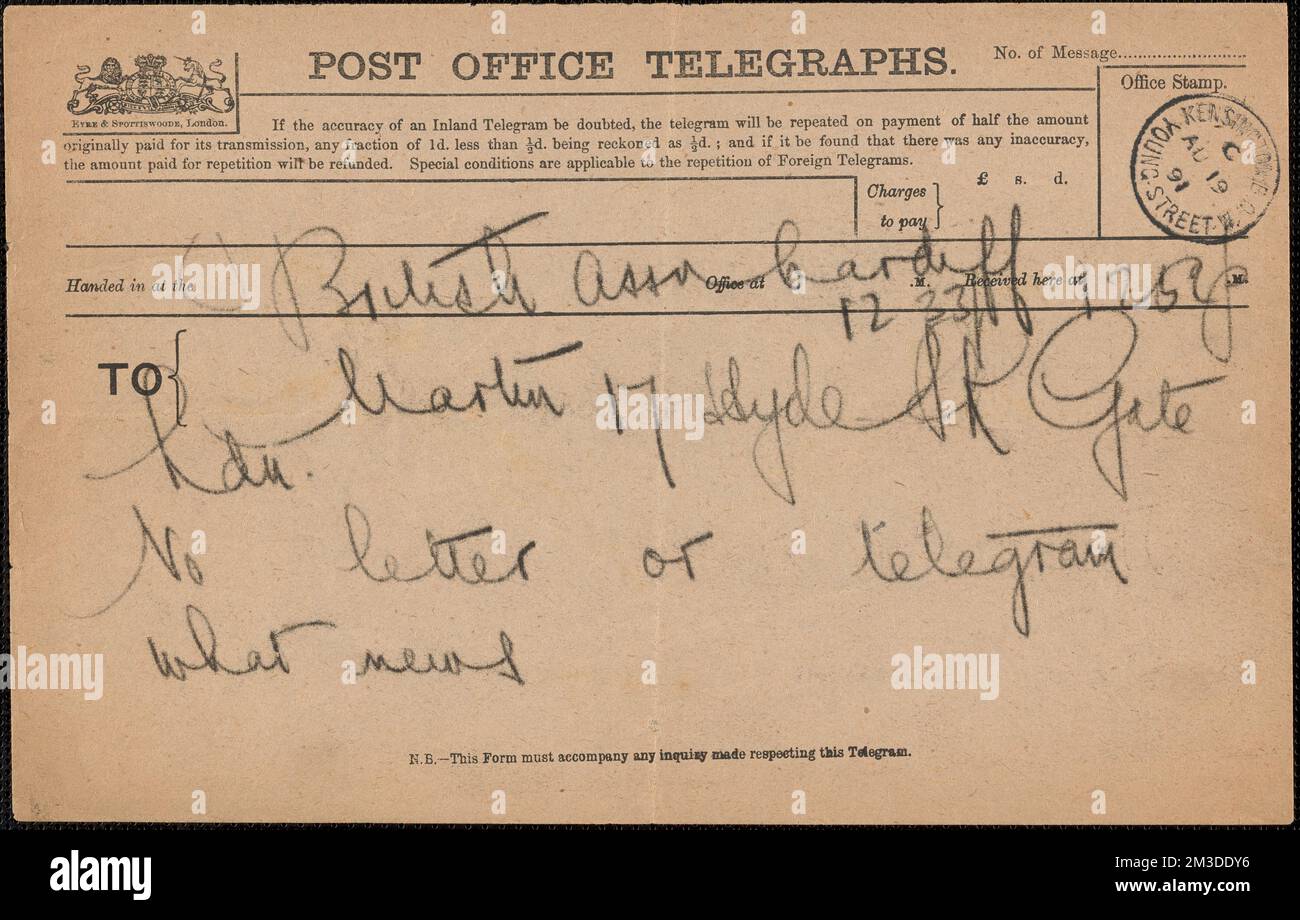 POST OFFICE TELEGRAPHS.
No. of Message
Office Stamp.
EYRE & SPOTTISWOODE, London.
If the accuracy of an Inland Telegram be doubted, the telegram will be repeated on payment of half the amount
originally paid for its transmission, any fraction of 1d. less than ½d. being reckoned as ½d. ; and if it be found that there was any inaccuracy,
the amount paid for repetition will be refunded. Special conditions are applicable to the repetition of Foreign Telegrams.
YOUNG STREET W.O. KENSINGTON
C
AU 19
91
Charges
to pay
£ s. d.
British Assn Cardiff
Handed in at the Office at .M. Received here at .M.
12 33
TO
Martin 17 Hyde Pk Gate
Ldn.
No letter or telegram
what news
N.B.—This Form must accompany any inquiry made respecting this Telegram.
alamy
alamy
Image ID: 2M3DDY6
www.alamy.com